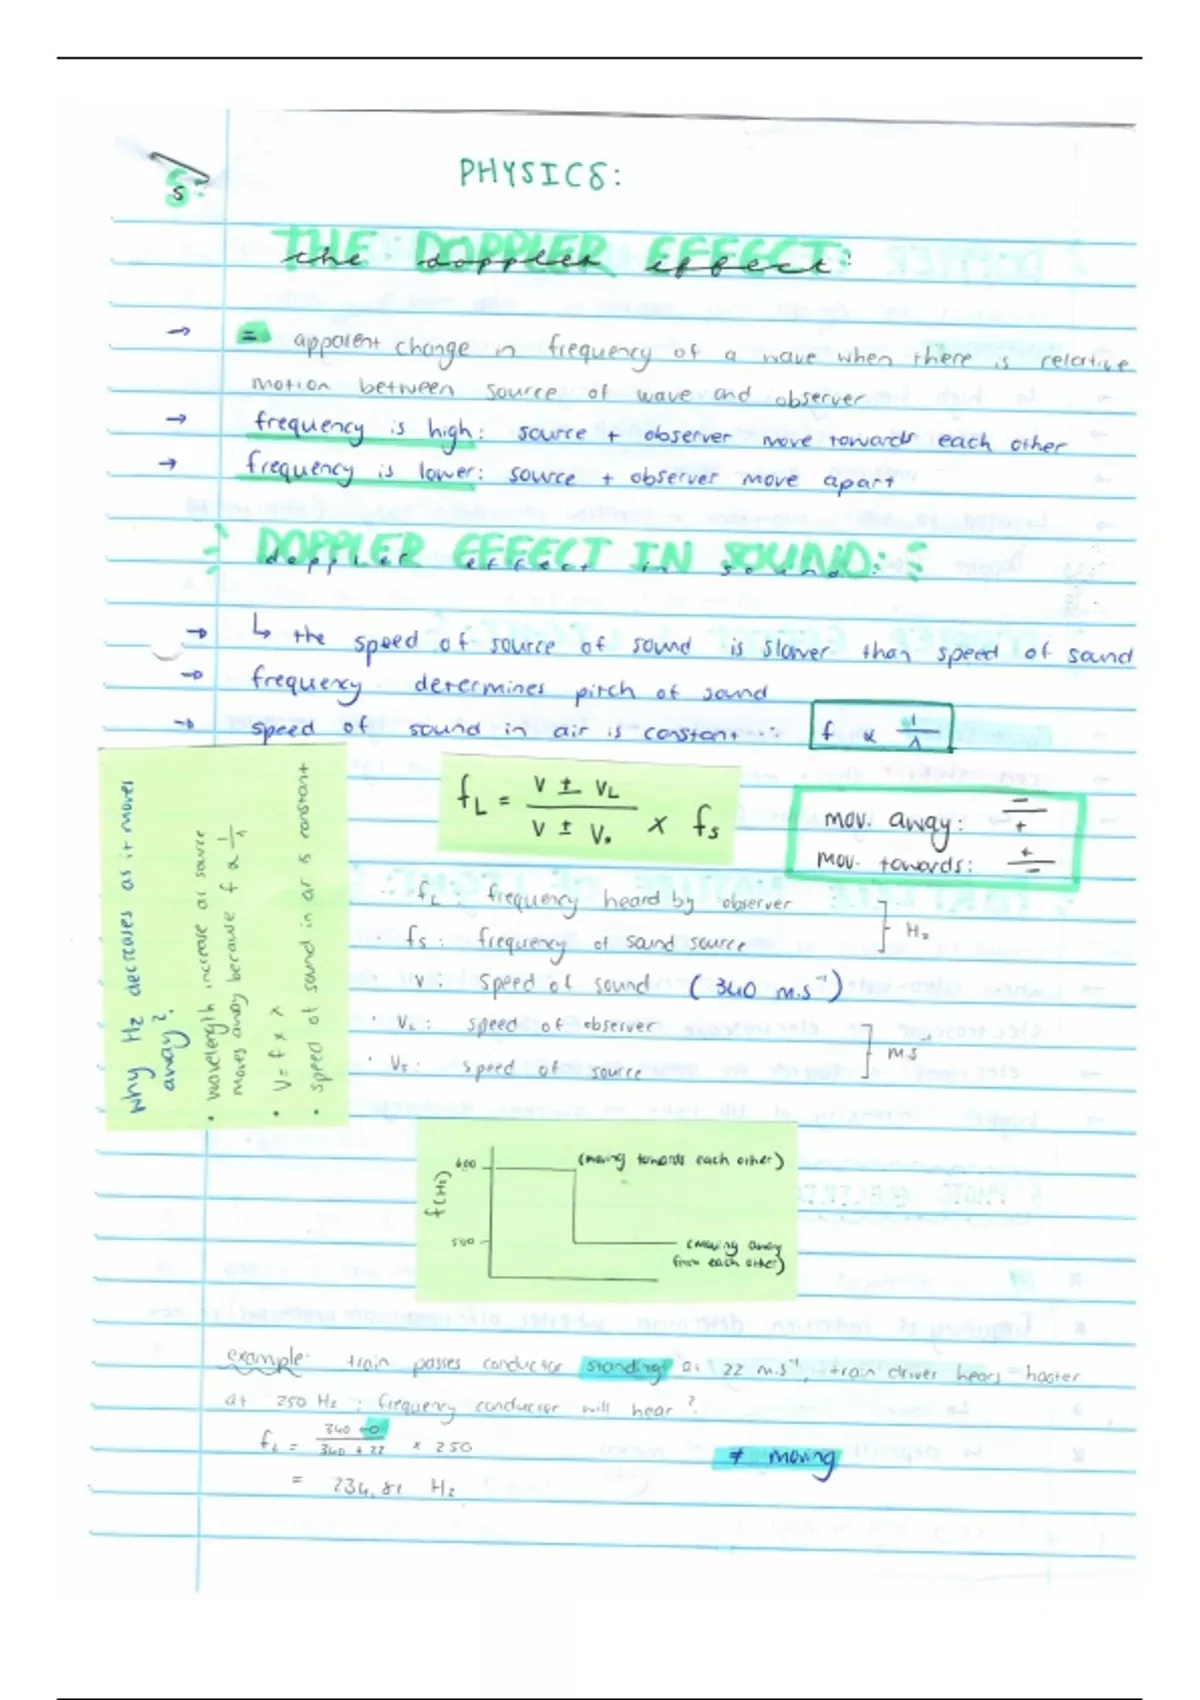 PHYSICS:
S:
THE DOPPLER EFFECT:
the doppler effect:
→ = apparent change in frequency of a wave when there is relative
motion between source of wave and observer
→ frequency is high: source + observer move towards each other
→ frequency is lower: source + observer move apart
DOPPLER EFFECT IN SOUND:
doppler effect in sound:
→ ↳ the speed of source of sound is slower than speed of sound
→ frequency determines pitch of sound
→ speed of sound in air is constant ∴ f ∝ 1/λ
why Hz decreases as it moves
away?
• wavelength increase as source
moves away because f ∝ 1/λ
• V = f x λ
• speed of sound in air is constant
fL = (V ± VL)/(V ± Vs) x fs
mov. away: −/+
mov. towards: +/−
fL : frequency heard by observer
fs : frequency of sound source
] Hz
v : speed of sound (340 m.s⁻¹)
• VL : speed of observer
• Vs : speed of source
] m.s⁻¹
f(Hz)
600
(moving towards each other)
500
(moving away
from each other)
example: train passes conductor standing at 22 m.s⁻¹, train driver hears hooter
at 250 Hz ; frequency conductor will hear?
fL = (340 + 0)/(340 + 22) x 250
≠ moving
= 234,81 Hz